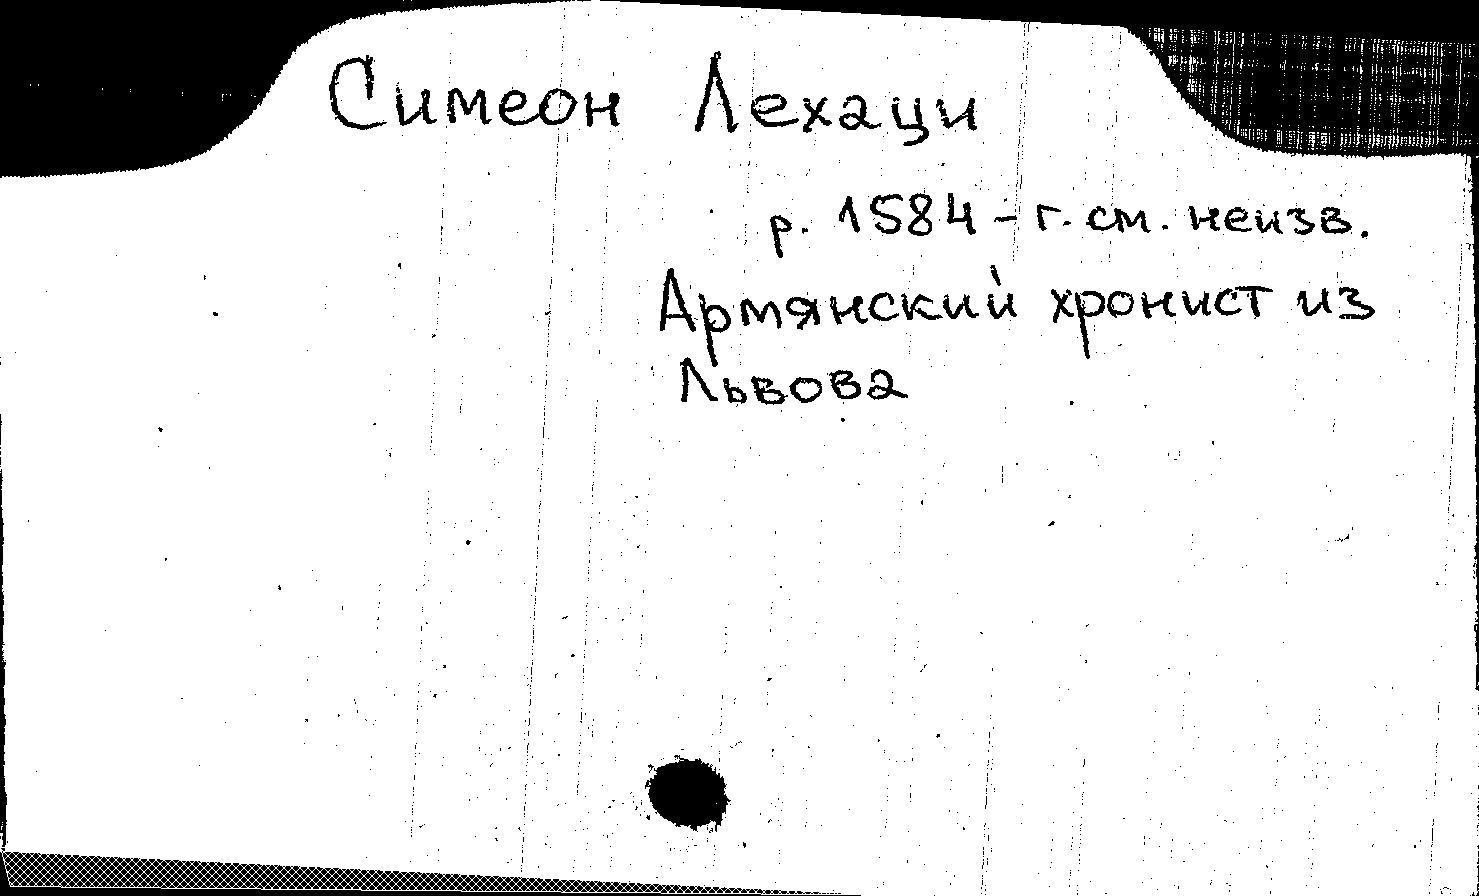 Симеон Лехаци
р. 1584 - г. см. неизв.
Армянский хронист из
Львова